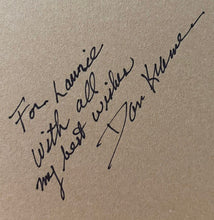 For Laurie
With all
my best wishes
Dan Kramer